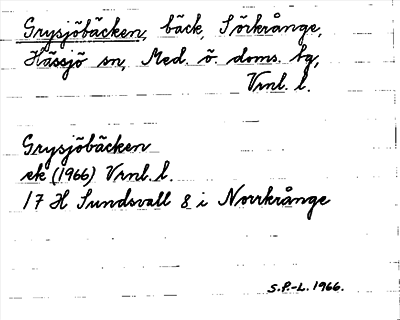 Grysjöbäcken, bäck, Sörkrånge,
Hässjö sn, Med. ö. doms. tg,
Vrnl. l.
Grysjöbäcken
ek (1966) Vrnl. l.
17 H Sundsvall 8 i Norrkrånge
S.P.-L. 1966.